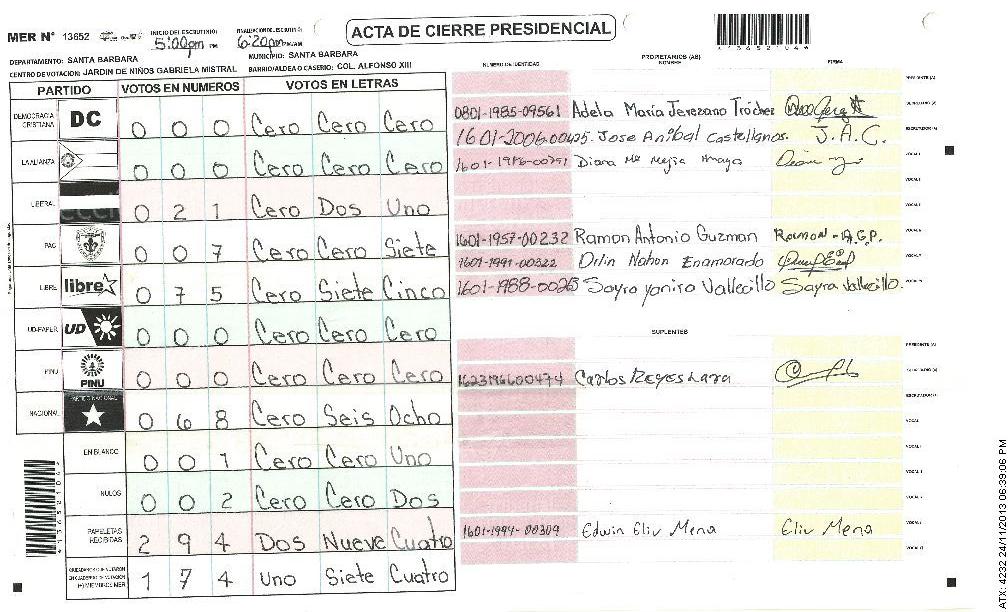 MER N° 13652
INICIO DEL ESCRUTINIO: 5:00pm PM
FINALIZACION DEL ESCRUTINIO: 6:20pm PM/AM
ACTA DE CIERRE PRESIDENCIAL
DEPARTAMENTO: SANTA BARBARA
MUNICIPIO: SANTA BARBARA
CENTRO DE VOTACION: JARDIN DE NIÑOS GABRIELA MISTRAL
BARRIO/ALDEA O CASERIO: COL. ALFONSO XIII
PARTIDO VOTOS EN NUMEROS VOTOS EN LETRAS
DEMOCRACIA CRISTIANA DC 0 0 0 Cero Cero Cero
LA ALIANZA 0 0 0 Cero Cero Cero
LIBERAL 0 2 1 Cero Dos Uno
PAC 0 0 7 Cero Cero Siete
LIBRE libre 0 7 5 Cero Siete Cinco
UD-FAPER UD 0 0 0 Cero Cero Cero
PINU PINU 0 0 0 Cero Cero Cero
NACIONAL PARTIDO NACIONAL 0 6 8 Cero Seis Ocho
EN BLANCO 0 0 1 Cero Cero Uno
NULOS 0 0 2 Cero Cero Dos
PAPELETAS RECIBIDAS 2 9 4 Dos Nueve Cuatro
CIUDADANOS QUE VOTARON EN CUADERNO DE VOTACION (+) MIEMBROS MER 1 7 4 Uno Siete Cuatro
PROPIETARIOS (AS)
NUMERO DE IDENTIDAD NOMBRE FIRMA
PRESIDENTE (A)
0801-1985-09561 Adela Maria Jerezano Tróchez SECRETARIO (A)
1601-2006-00425 Jose Anibal Castellanos. J.A.C. ESCRUTADOR (A)
Diana Mª Mejia Amaya VOCAL I
1601-1957-00232 Ramon Antonio Guzman Ramon - A.G.P.
1601-1991-00322 Orlin Nahon Enamorado
1601-1988-0026 Sayra yanira Vallecillo Sayra Vallecillo.
SUPLENTES
PRESIDENTE (A)
1623196600474 Carlos Reyes Lara SECRETARIO (A)
ESCRUTADOR (A)
1601-1994-00309 Edwin Eliv Mena Eliv Mena
ATX: 4232 24/11/2013 06:39:06 PM